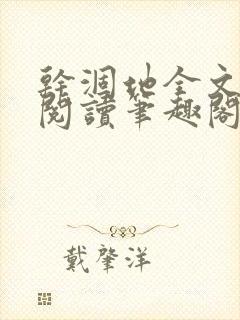 幹涸地全文
閱讀筆趣閣
戴肇洋